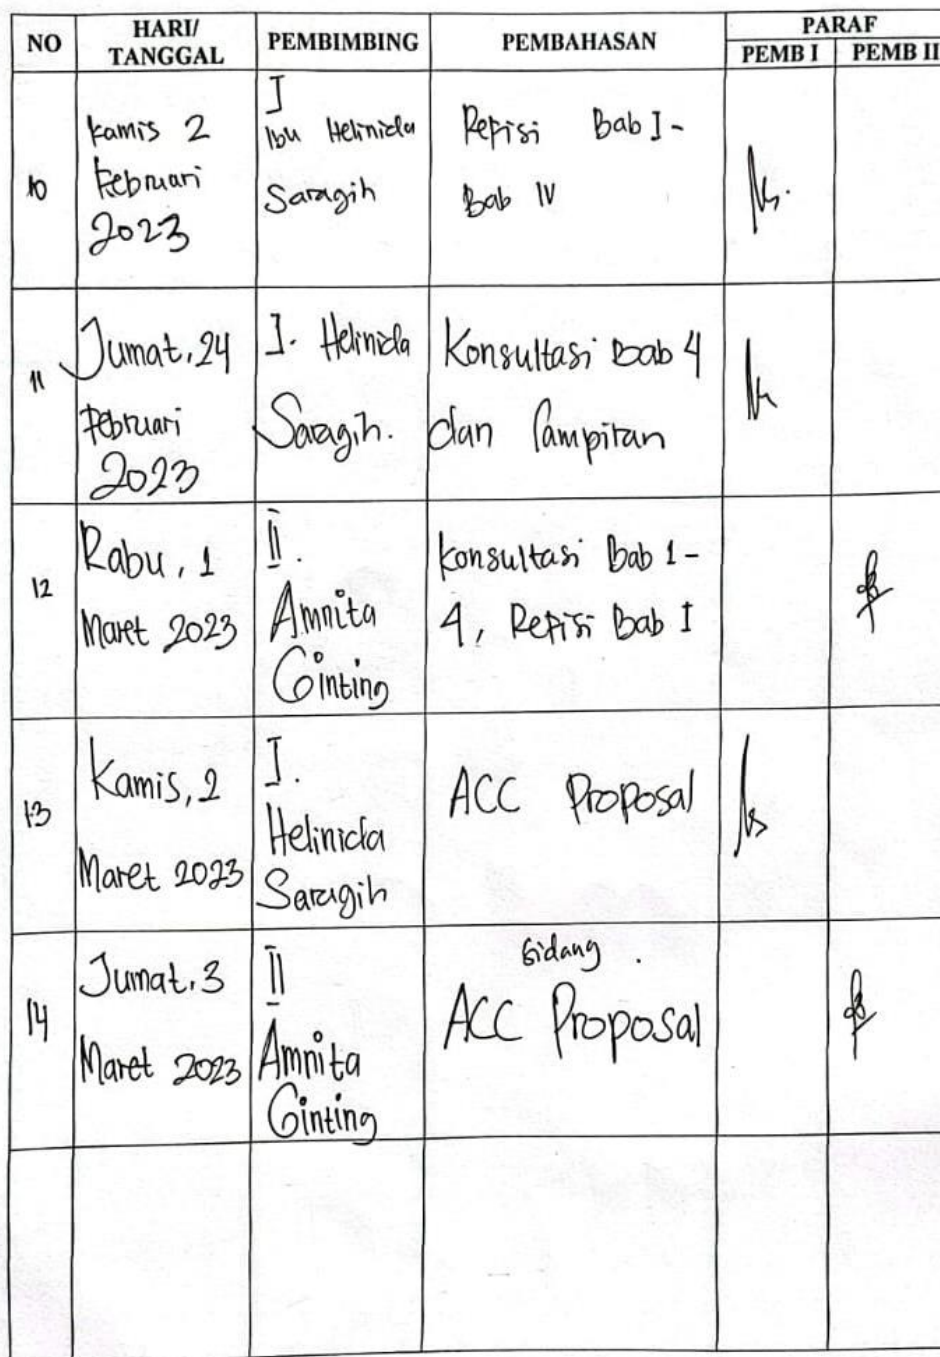 NO HARI/ TANGGAL PEMBIMBING PEMBAHASAN PARAF
PEMB I PEMB II
10
Kamis 2
Februari
2023
I
Ibu Helinida
Saragih
Refisi Bab I -
Bab IV
11
Jumat, 24
Februari
2023
I. Helinida
Saragih.
Konsultasi Bab 4
dan Lampiran
12
Rabu, 1
Maret 2023
II.
Amnita
Ginting
Konsultasi Bab 1 -
4, Refisi Bab I
13
Kamis, 2
Maret 2023
I.
Helinida
Saragih
ACC Proposal
14
Jumat, 3
Maret 2023
II
Amnita
Ginting
Sidang .
ACC Proposal